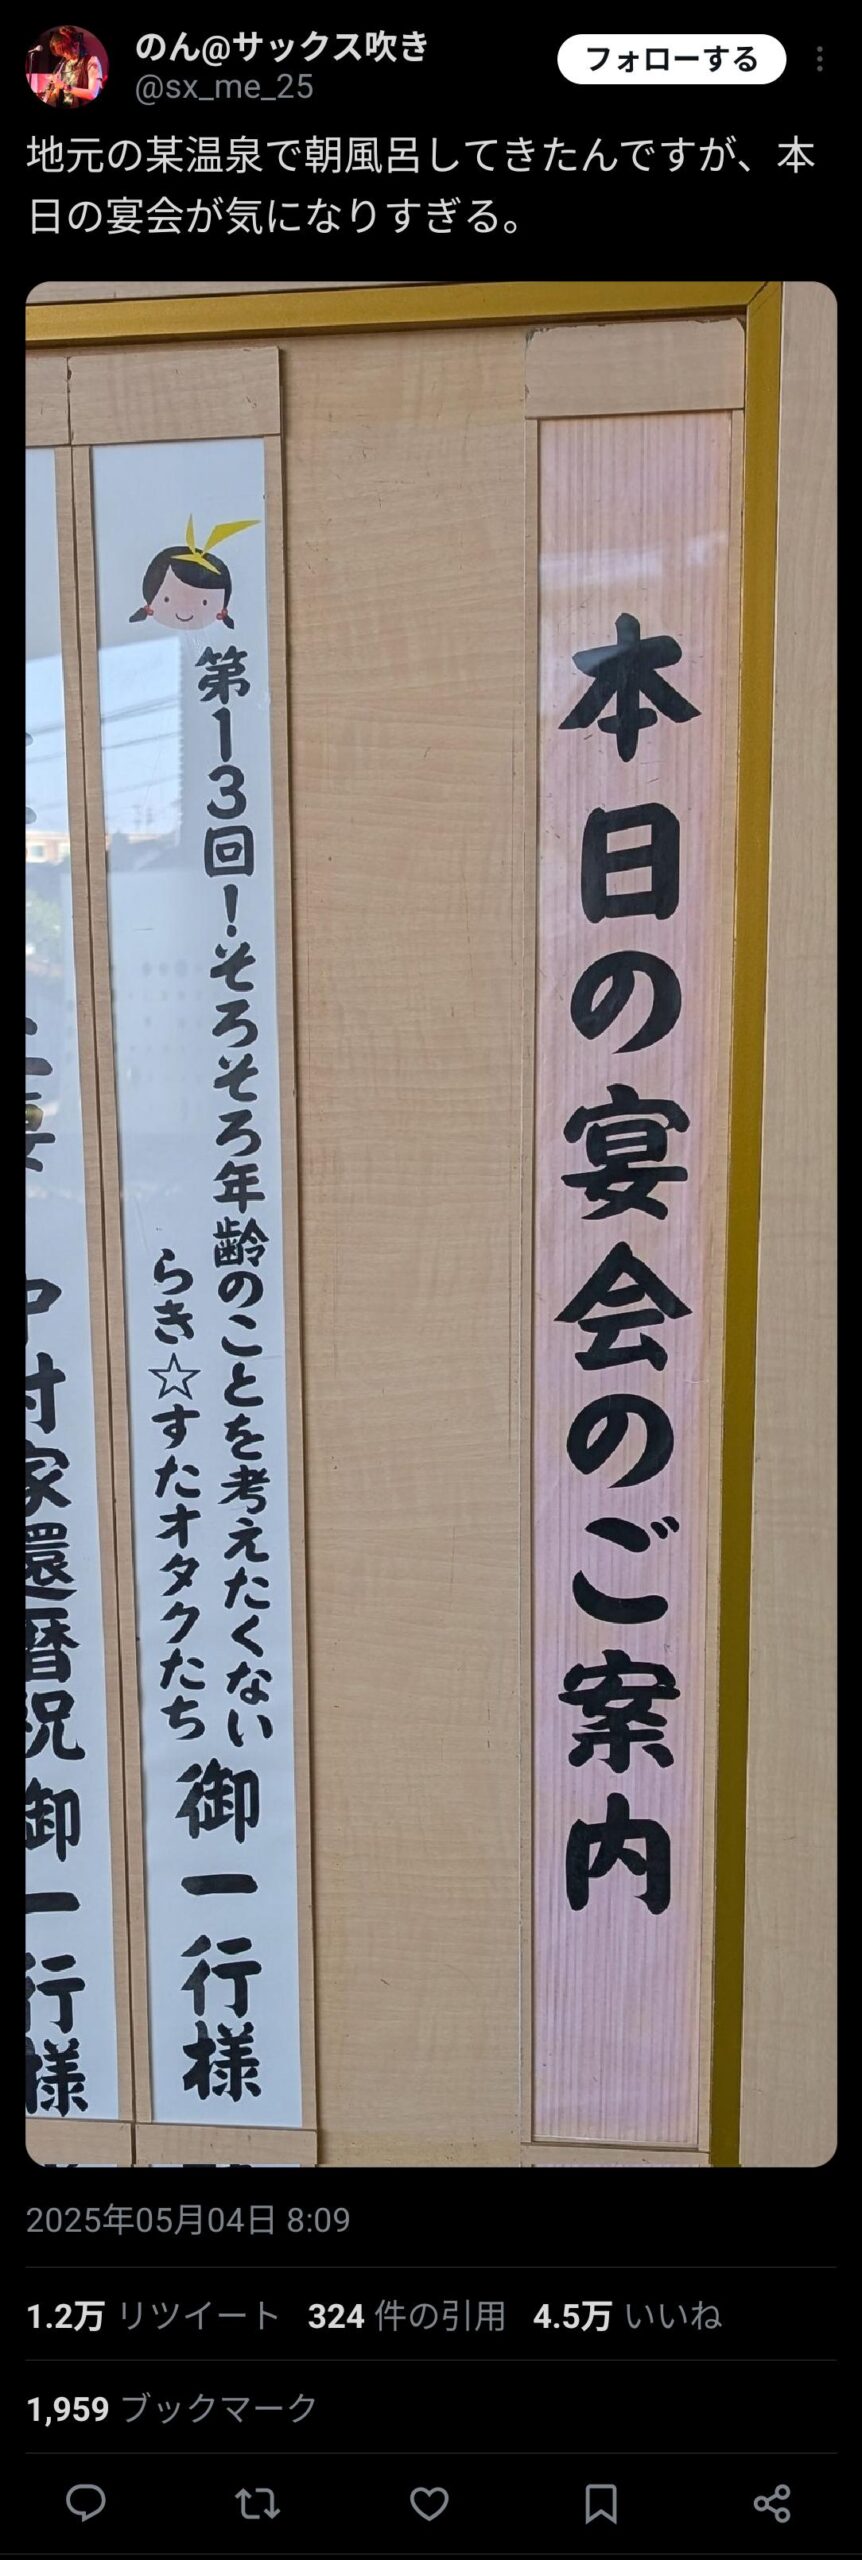 のん@サックス吹き
@sx_me_25
フォローする
地元の某温泉で朝風呂してきたんですが、本
日の宴会が気になりすぎる。
本日の宴会のご案内
第13回！そろそろ年齢のことを考えたくない
らき☆すたオタクたち
御一行様
村家還暦祝御一行様
2025年05月04日 8:09
1.2万 リツイート 324 件の引用 4.5万 いいね
1,959 ブックマーク